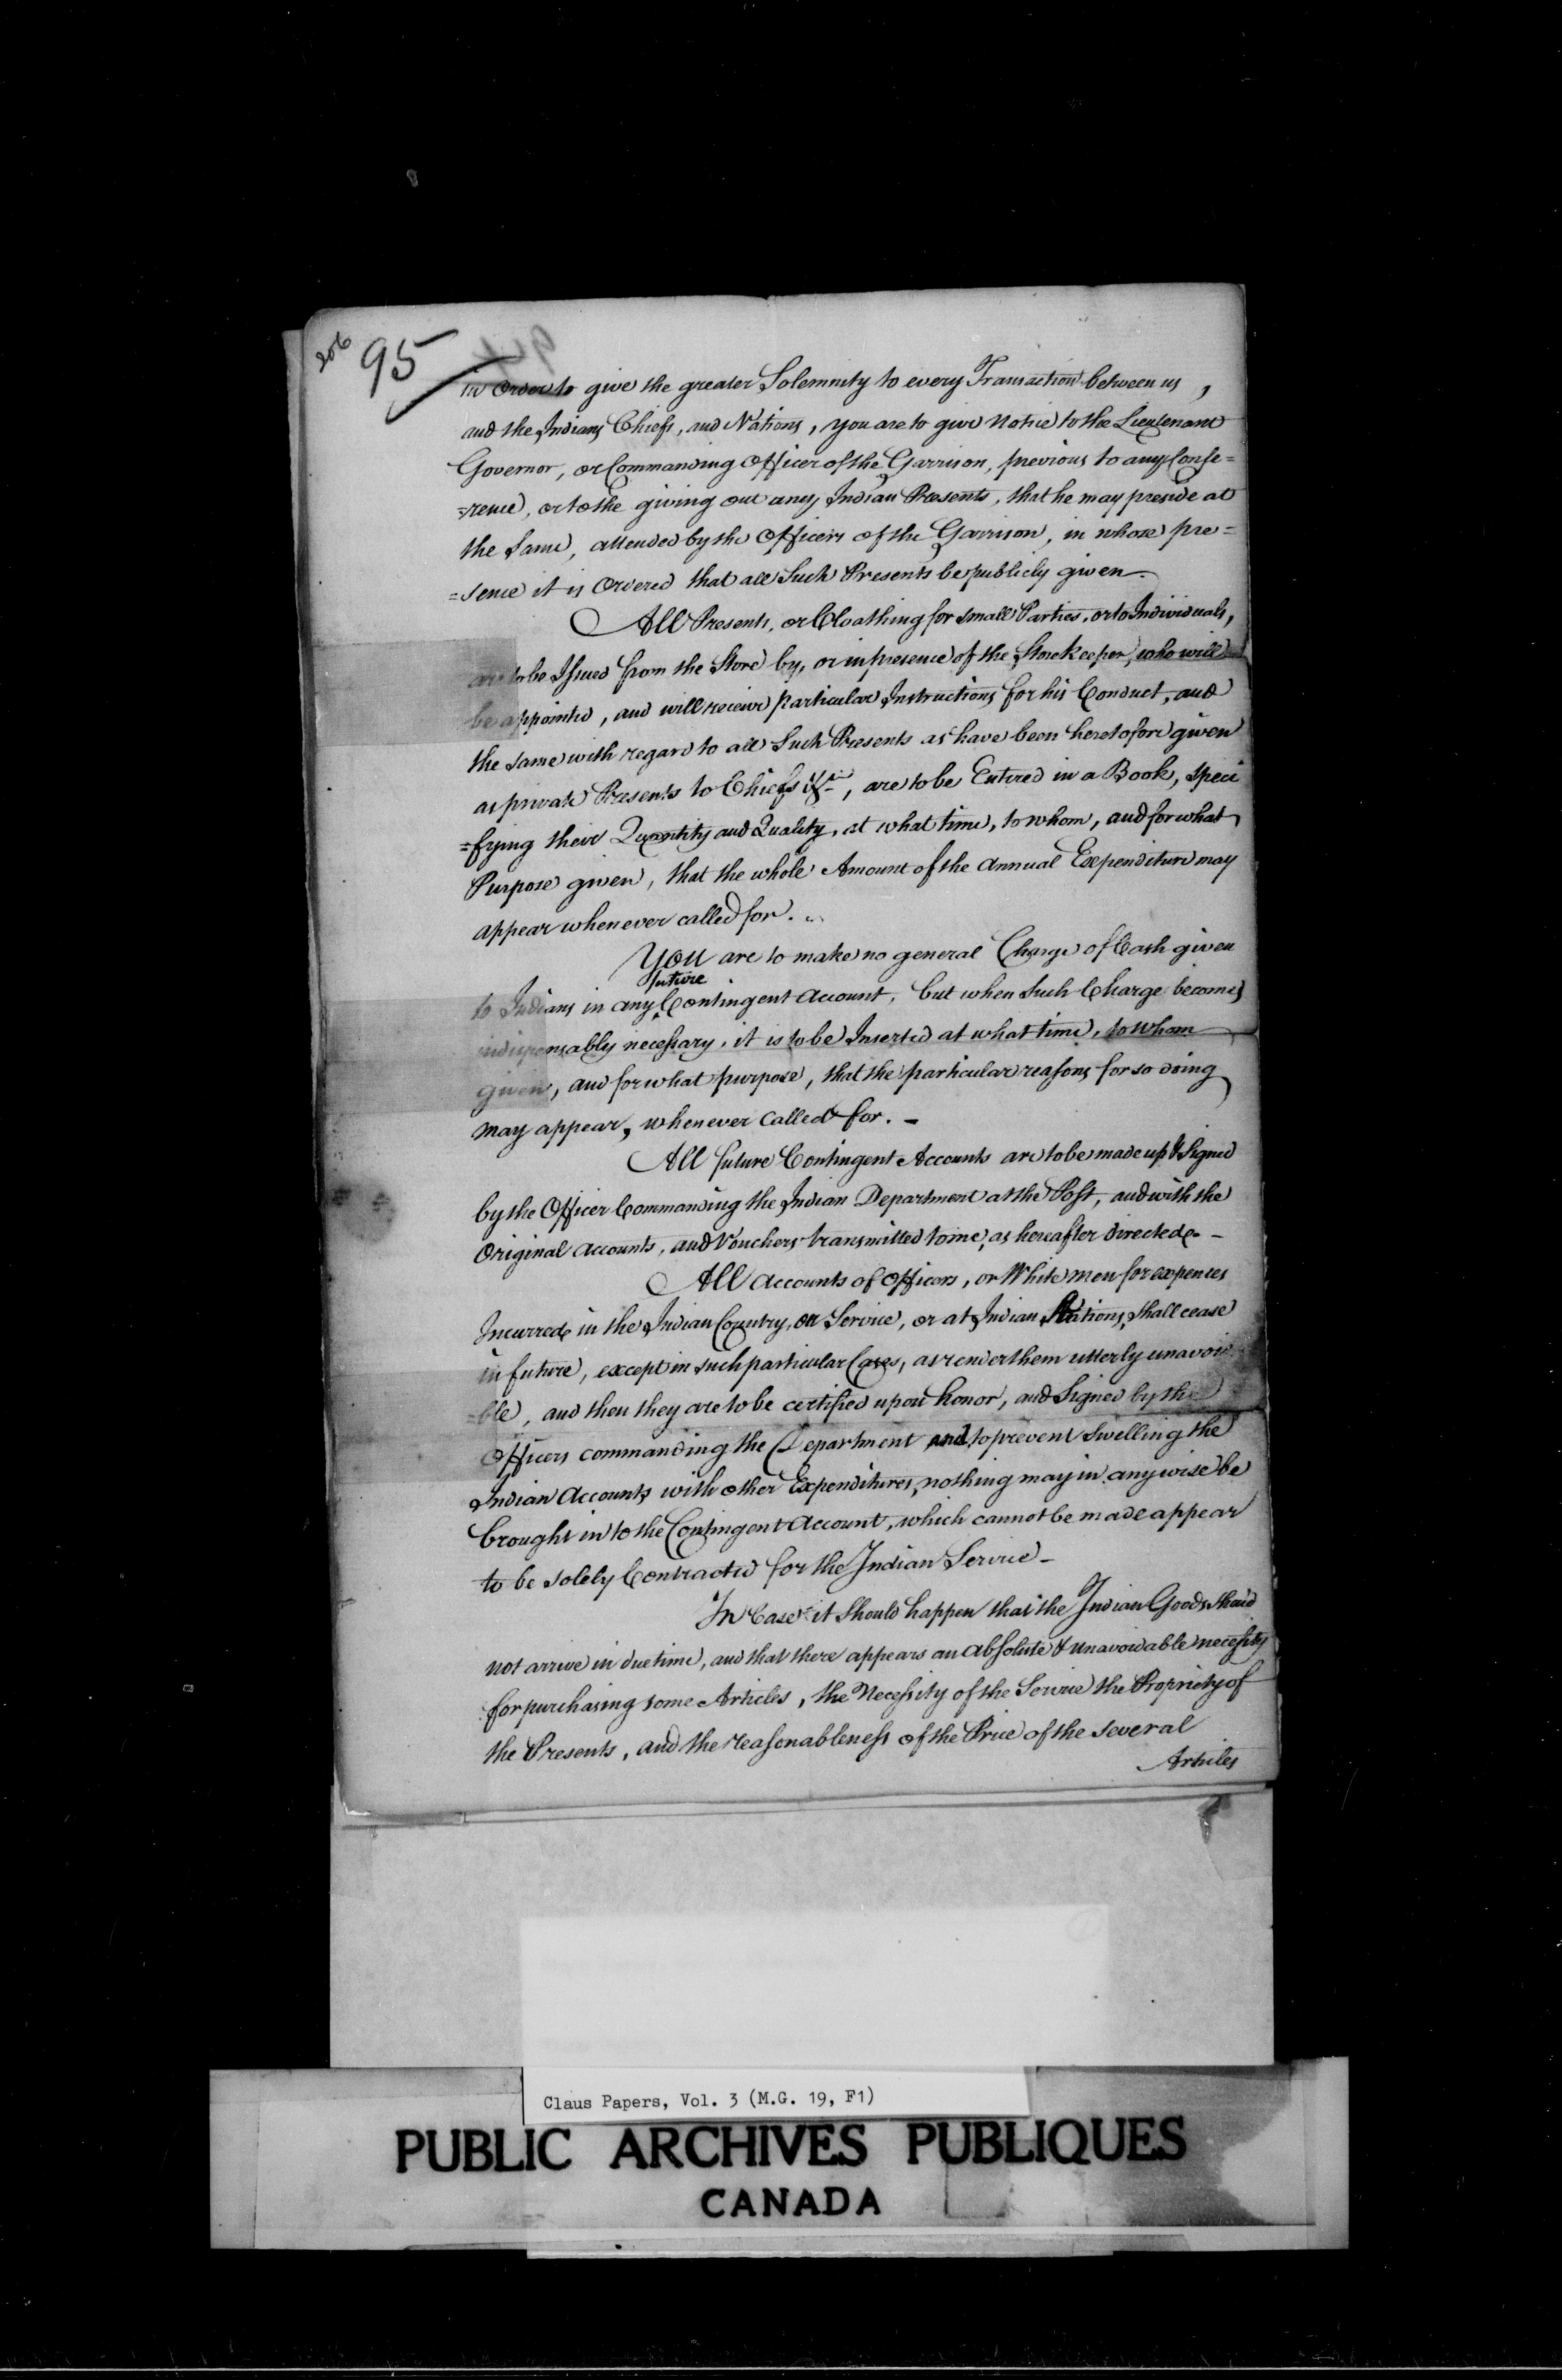 206
95
94
in Order to give the greater Solemnity to every Transaction between us,
and the Indians Chiefs, and Nations, you are to give Notice to the Lieutenant
Governor, or Commanding Officer of the Garrison, previous to any Confe=
=rence, or to the giving out any Indian Presents, that he may preside at
the Same, attended by the Officers of the Garrison, in whose pre=
=sence it is Ordered that all Such Presents be publicly given.
All Presents, or Cloathing for small Parties, or to Individuals,
are to be Issued from the Store by, or in presence of the Storekeeper, who will
be appointed, and will receive particular Instructions for his Conduct, and
the same with regard to all Such Presents as have been heretofore given
as private Presents to Chiefs &ca, are to be Entered in a Book, speci
=fying their Quantity and Quality, at what time, to whom, and for what
Purpose given, that the whole Amount of the annual Expenditure may
appear whenever called for.
You are to make no general Charge of Cash given
future
to Indians in any ‸ Contingent Account, but when Such Charge becomes
indispensably necessary, it is to be Inserted at what time, to whom
given, and for what purpose, that the particular reasons for so doing
may appear, whenever Called for. -
All future Contingent Accounts are to be made up & Signed
by the Officer Commanding the Indian Department at the Post, and with the
Original accounts, and Vouchers transmitted to me, as hereafter directed. -
All Accounts of Officers, or White men for expences
Incurred in the Indian Country, on Service, or at Indian Stations, shall cease
in future, except in such particular Cases, as render them utterly unavoid
=ble, and then they are to be certified upon honor, and Signed by the
Officers commanding the Department and to prevent Swelling the
Indian Accounts with other Expenditures, nothing may in anywise be
brought in to the Contingent Account, which cannot be made appear
to be solely Contracted for the Indian Service -
In Case it should happen that the Indian Goods shou'd
not arrive in due time, and that there appears an absolute & unavoidable necessity
for purchasing some Articles, the Necessity of the Service the Propriety of
the Presents, and the reasonableness of the Price of the several
Articles
Claus Papers, Vol. 3 (M.G. 19, F1)
PUBLIC ARCHIVES PUBLIQUES
CANADA